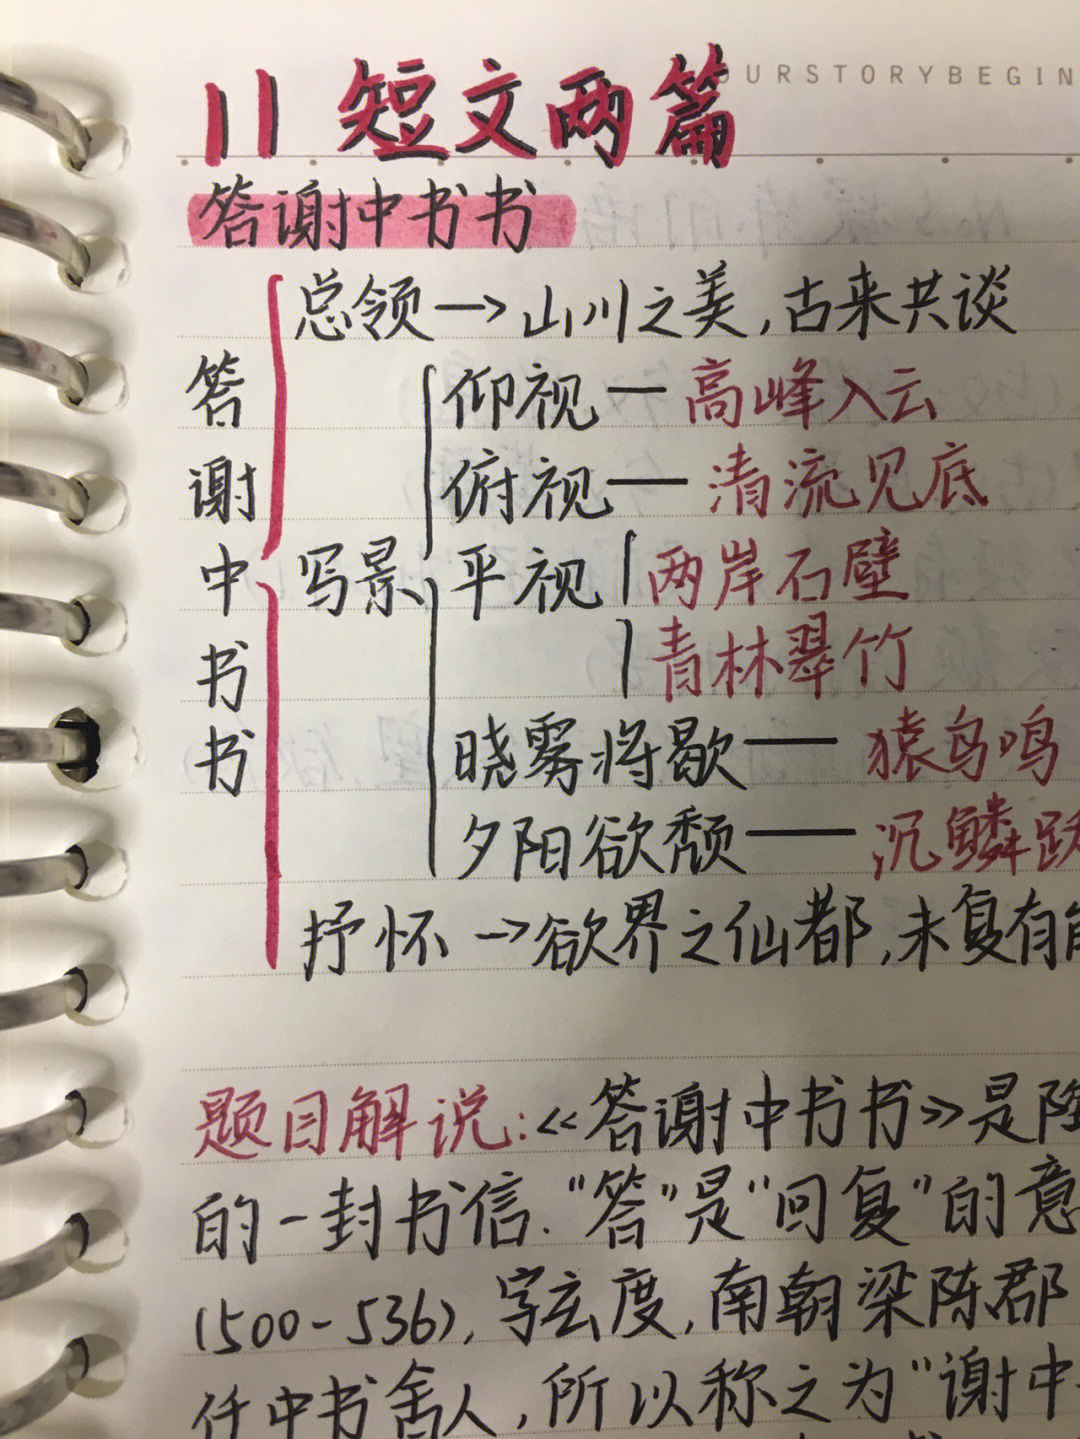 OURSTORYBEGIN
11 短文两篇
答谢中书书
答谢中书书
总领→山川之美,古来共谈
写景
仰视—高峰入云
俯视—清流见底
平视
两岸石壁
青林翠竹
晓雾将歇—猿鸟鸣
夕阳欲颓—沉鳞跃
抒怀→欲界之仙都,未复有能
题目解说:《答谢中书书》是陶
的一封书信."答"是"回复"的意
(500-536),字玄度,南朝梁陈郡
任中书舍人,所以称之为"谢中